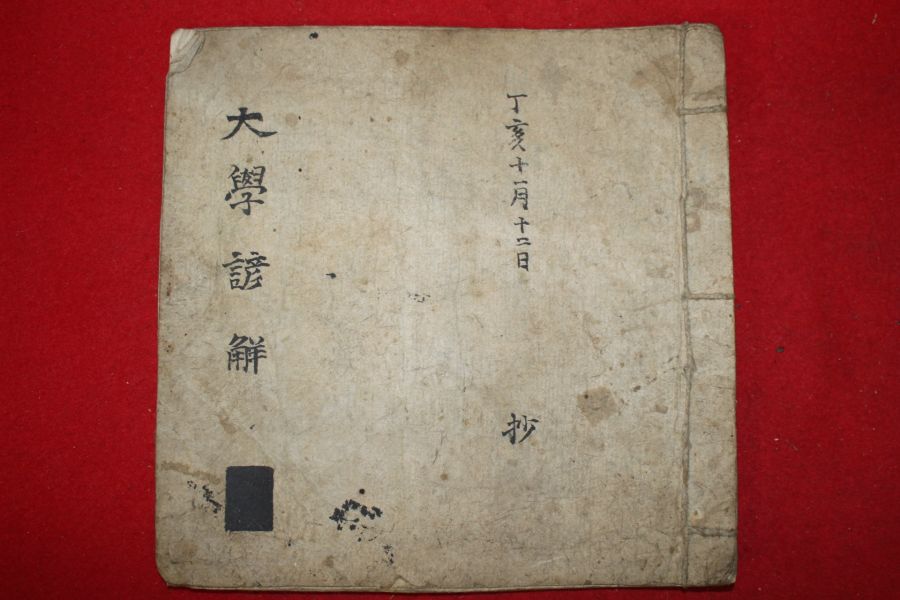 丁亥十一月十二日 抄
大學諺觧